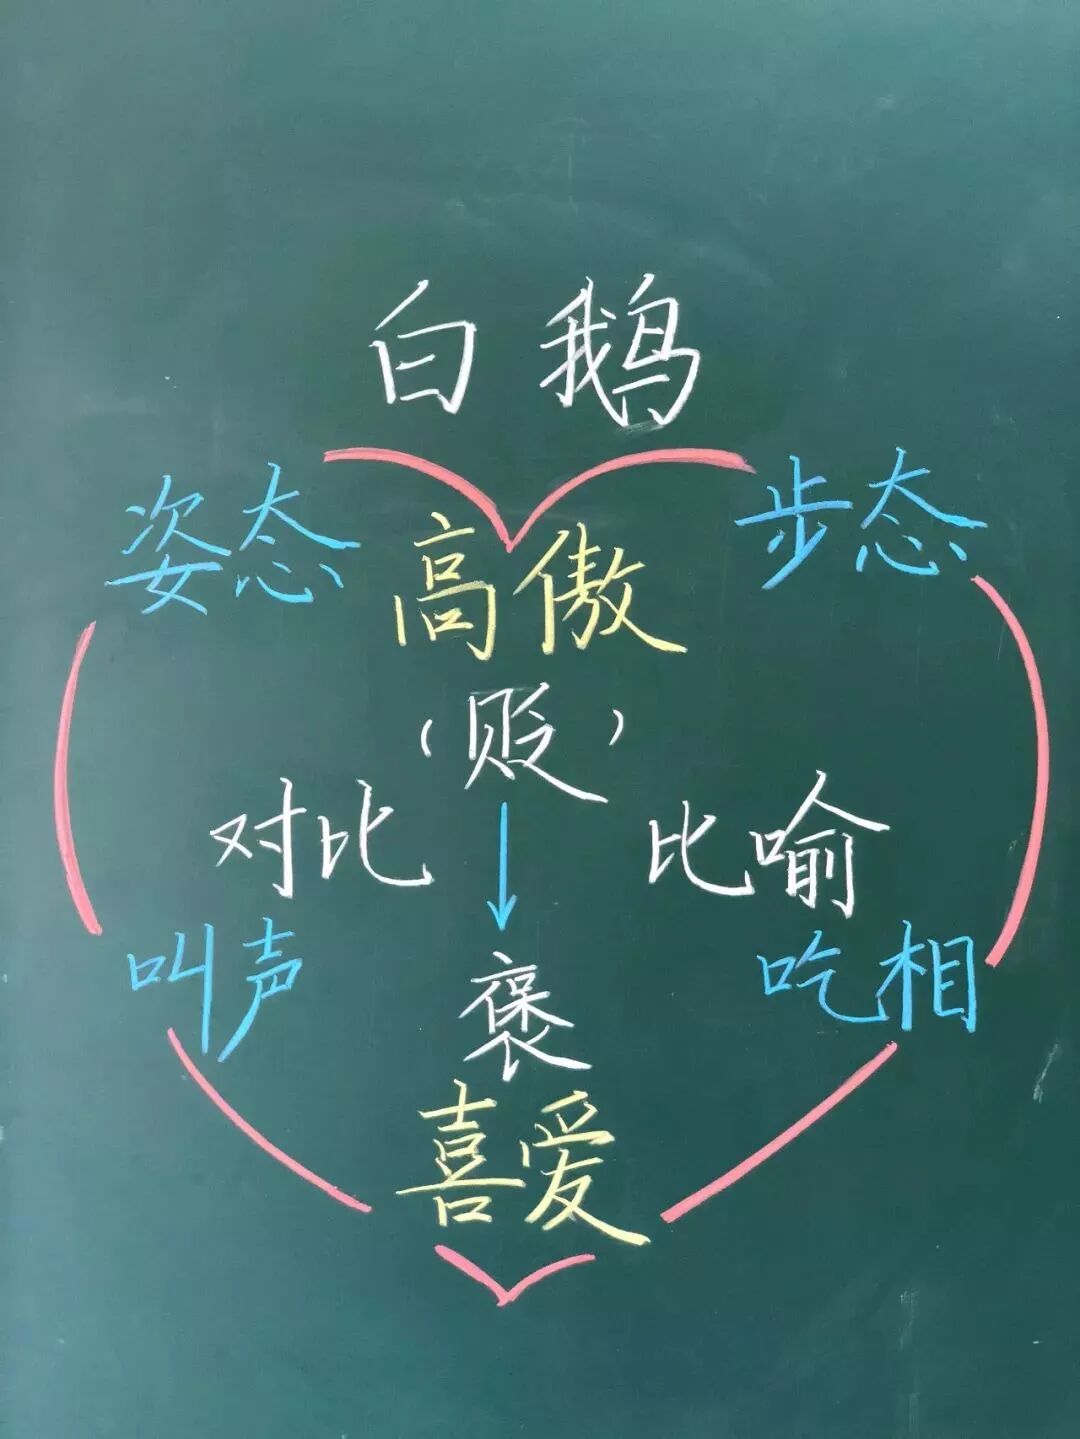 白鹅
姿态 步态
高傲
（贬）
对比 比喻
叫声 吃相
褒
喜爱